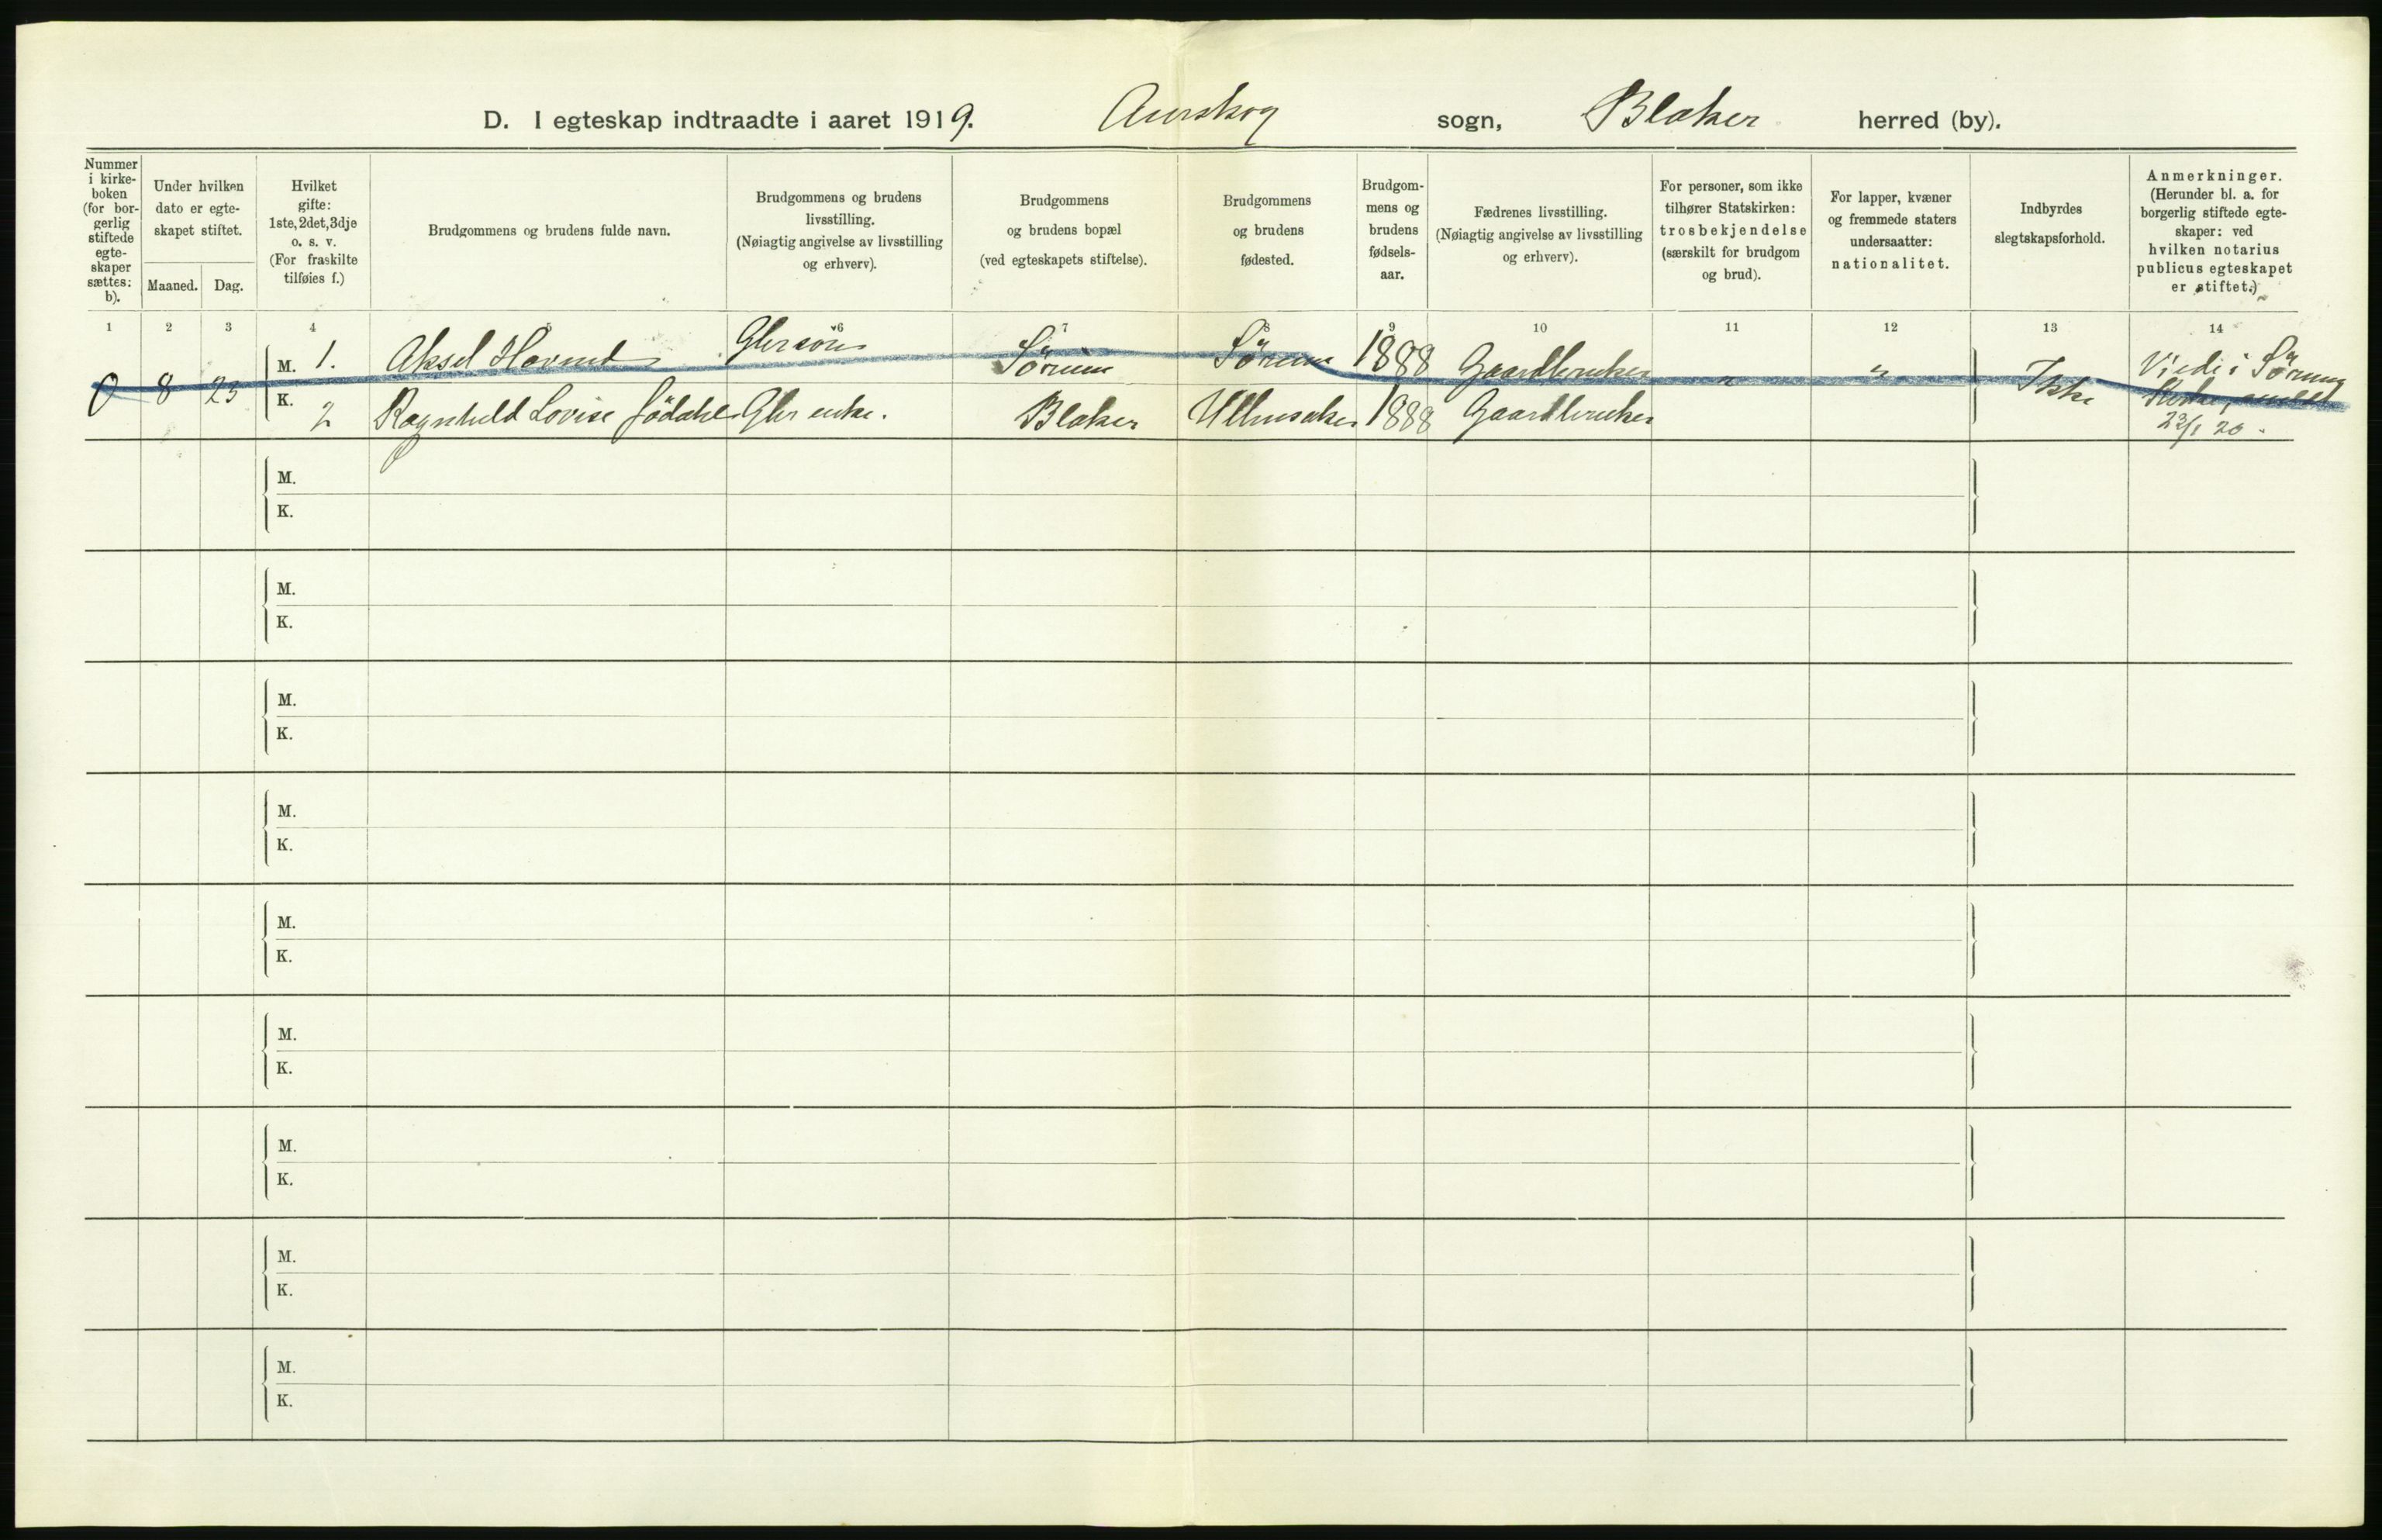 D. I egteskap indtraadte i aaret 1919. Aurskog sogn, Blaker herred (by).
Nummer
i kirke-
boken
(for bor-
gerlig
stiftede
egte-
skaper
sættes:
b).
Under hvilken
dato er egte-
skapet stiftet.
Maaned. Dag.
Hvilket
gifte:
1ste, 2det, 3dje
o. s. v.
(For fraskilte
tilføies f.)
Brudgommens og brudens fulde navn.
Brudgommens og brudens
livsstilling.
(Nøiagtig angivelse av livsstilling
og erhverv).
Brudgommens
og brudens bopæl
(ved egteskapets stiftelse).
Brudgommens
og brudens
fødested.
Brudgom-
mens og
brudens
fødsels-
aar.
Fædrenes livsstilling.
(Nøiagtig angivelse av livsstilling
og erhverv).
For personer, som ikke
tilhører Statskirken:
trosbekjendelse
(særskilt for brudgom
og brud).
For lapper, kvæner
og fremmede staters
undersaatter:
nationalitet.
Indbyrdes
slegtskapsforhold.
Anmerkninger.
(Herunder bl. a. for
borgerlig stiftede egte-
skaper: ved
hvilken notarius
publicus egteskapet
er stiftet.)
1 2 3 4 5 6 7 8 9 10 11 12 13 14
0 8 23
M. 1. Aksel Gbr søn Sørum Sørum 1888 Gaardbruker " "
K. 2 Ragnhild Lovise Gbr enke. Blaker Ullensaker 1888 Gaardbruker
Ikke
Viedi i Sørum
Kirke, anmeldt
22/1 20.
M.
K.
M.
K.
M.
K.
M.
K.
M.
K.
M.
K.
M.
K.
M.
K.
M.
K.